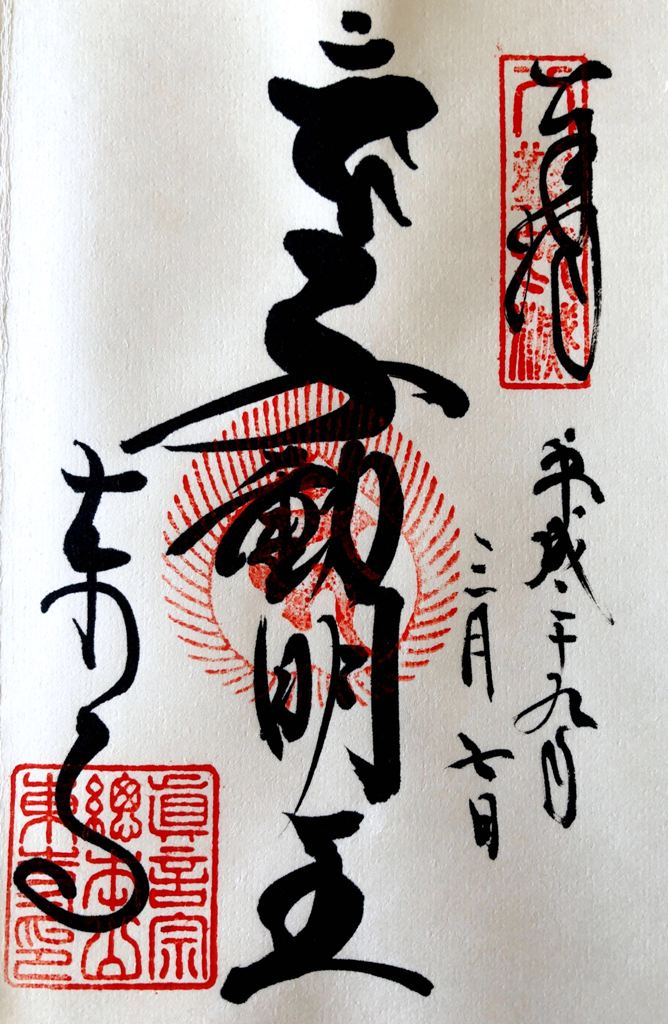 奉拝
平成二十九年
三月七日
不動明王
東寺
眞言宗
總本山
東寺印